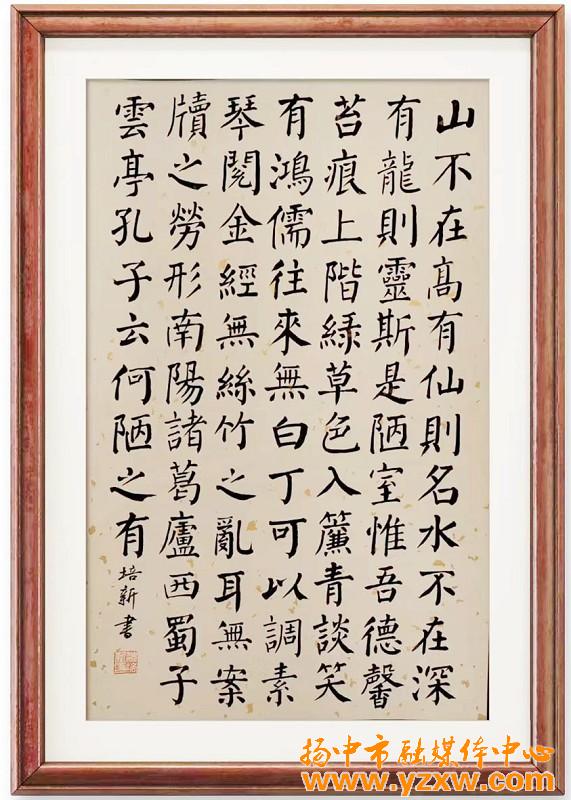 山不在高有仙則名水不在深
有龍則靈斯是陋室惟吾德馨
苔痕上階緑草色入簾青談笑
有鴻儒往來無白丁可以調素
琴閱金經無絲竹之亂耳無案
牘之勞形南陽諸葛廬西蜀子
雲亭孔子云何陋之有
培新書
扬中市融媒体中心
www.yzxw.com